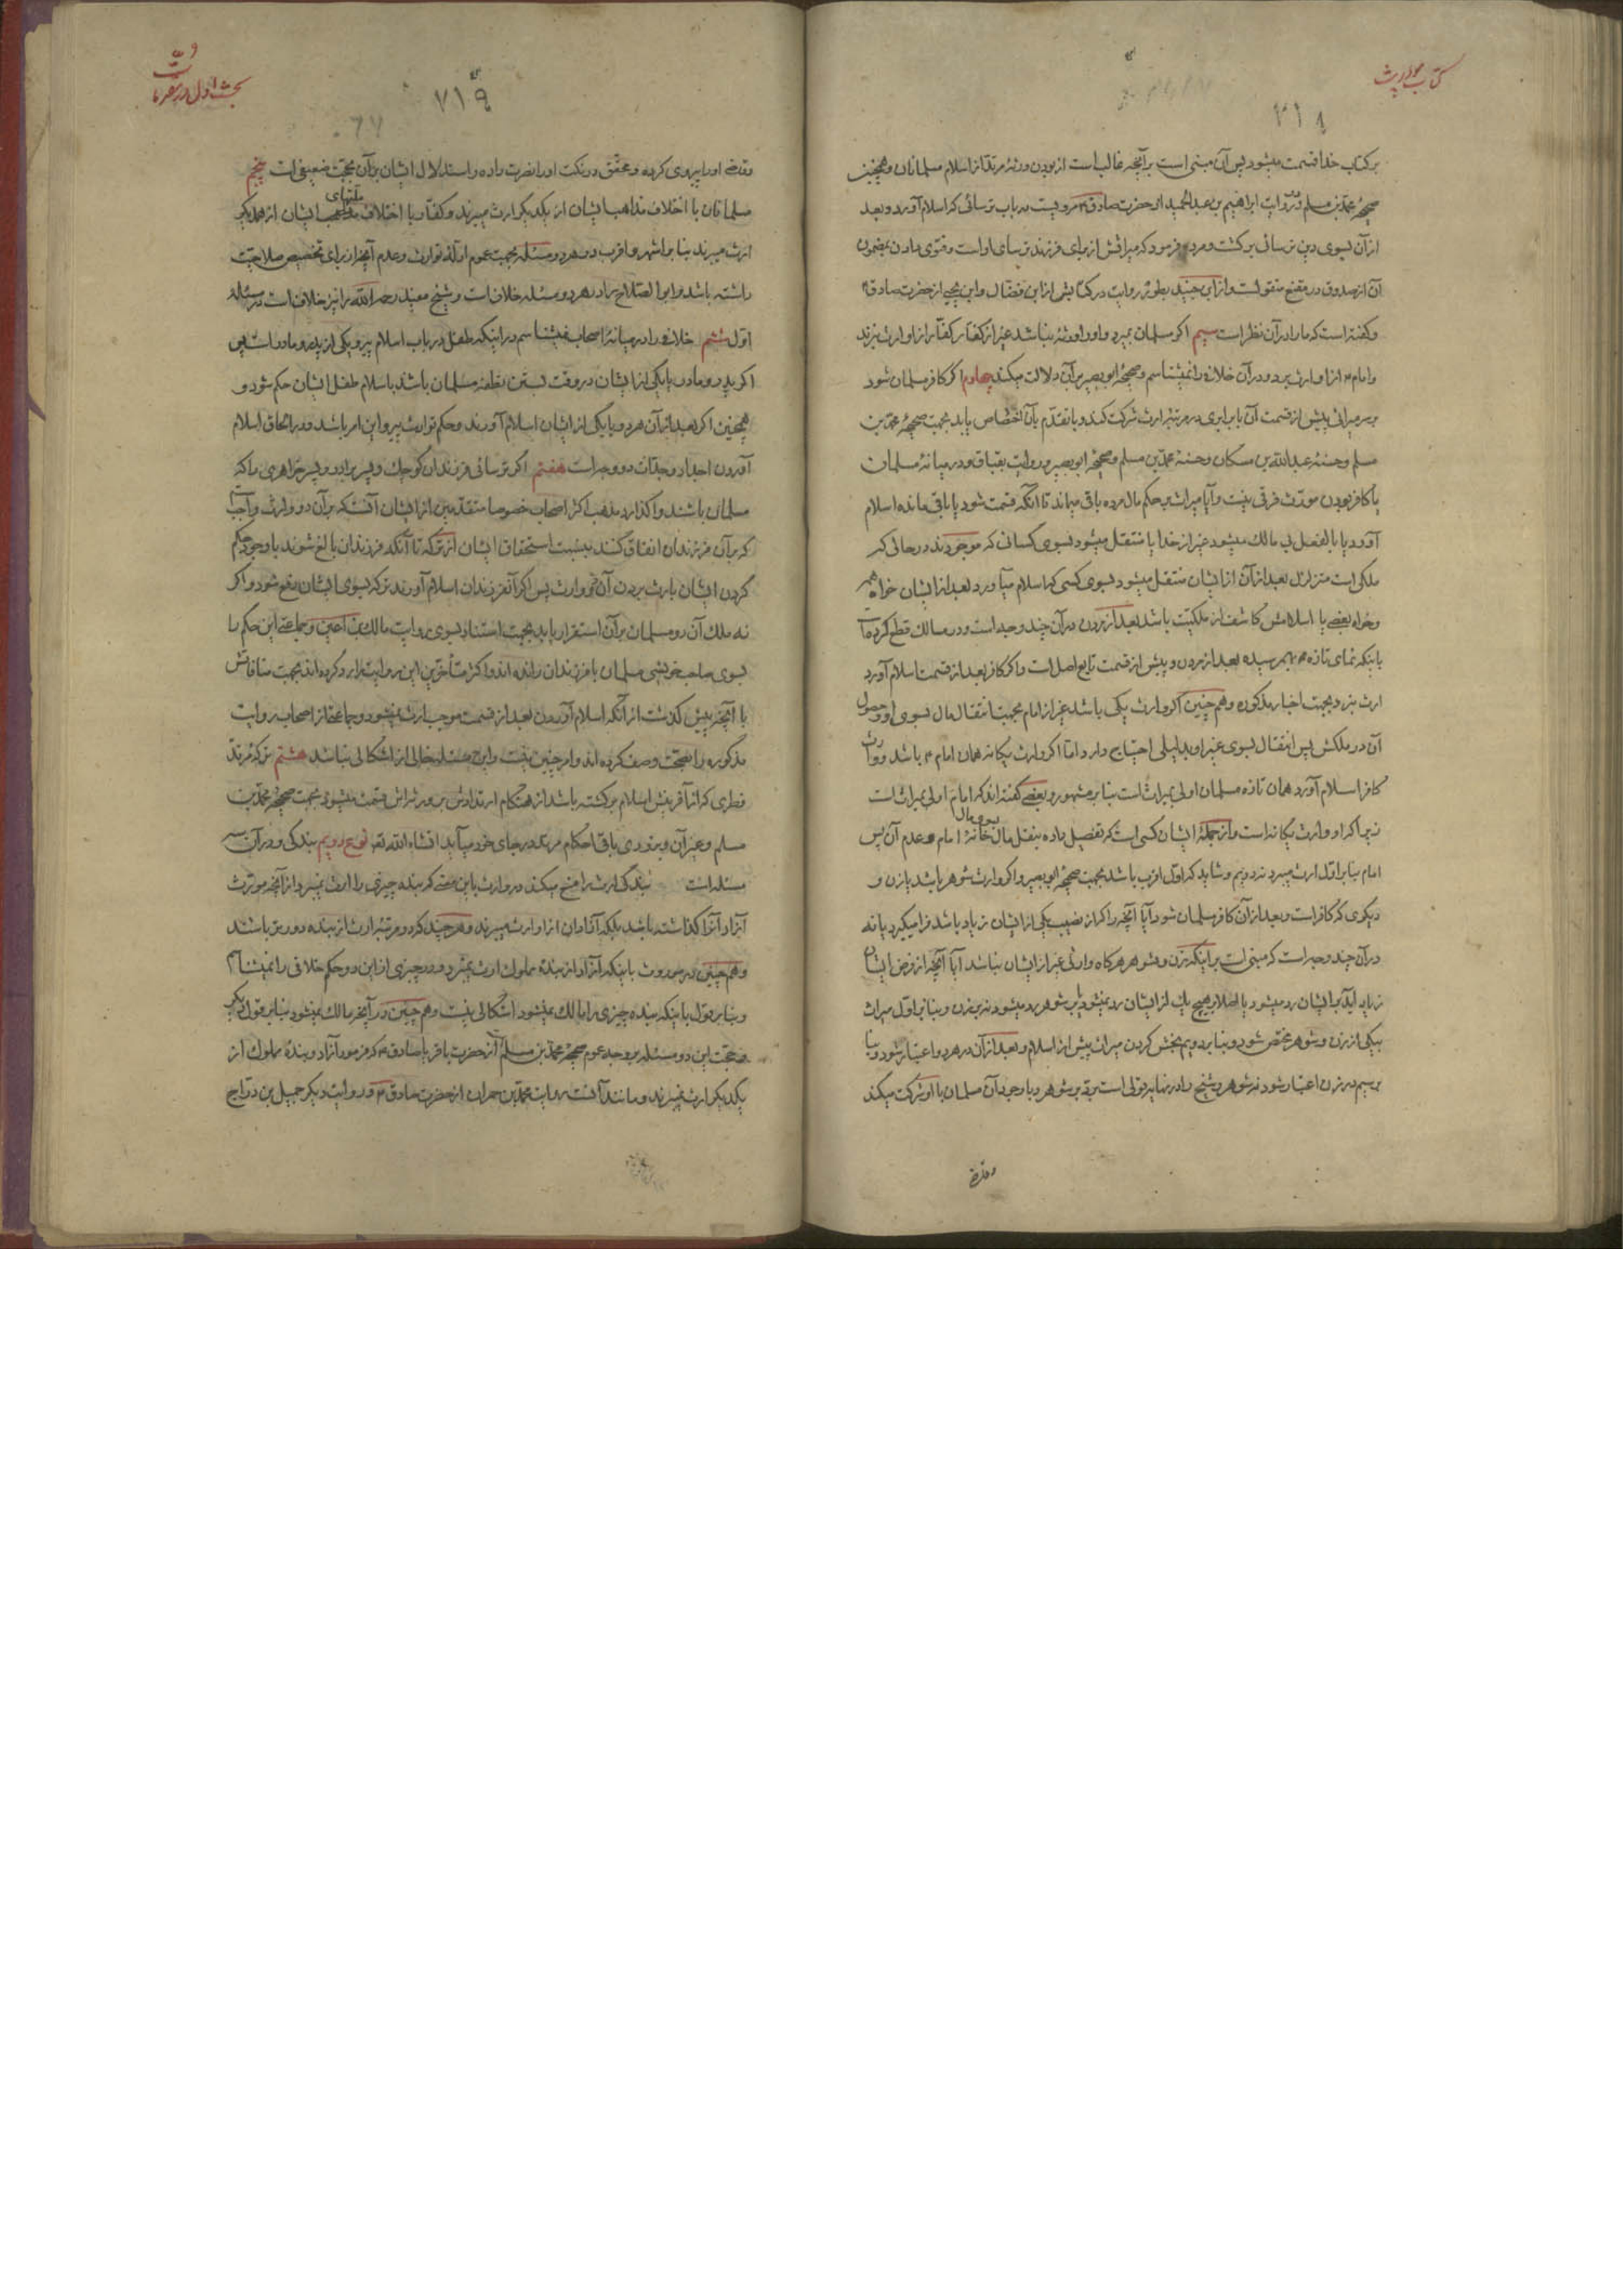 کتاب مواریث
۷۱۸
بر کتاب خدا قسمت میشود پس آن مبنی است بر آنچه غالب است از بودن ورثهٔ مرتد از اسلام مسلمانان و همچنین
صحیحهٔ محمد بن مسلم و در روایت ابراهیم بن عبدالحمید از حضرت صادق ع مرویست در باب ترسائی که اسلام آورد و بعد
از آن بسوی دین ترسائی برگشت و مرد فرمود که میراثش از برای فرزند ترسای او است و فتوی دادن بمضمون
آن از صدوق در مقنع منقولست و از ابن جنید بطور روایت در کتابش از ابن فضال و ابن یحیی از حضرت صادق ع
و گفته است که ما را در آن نظر است سیم اگر مسلمان بمیرد و او را ورثهٔ نباشد غیر از کفار کفار از او ارث نبرند
و امام ع از او ارث برد و در آن خلافی را نمیشناسم و صحیحهٔ ابو بصیر بر آن دلالت میکند چهارم اگر کافر مسلمان شود
بر میراثی پیش از قسمت آن با برابری در مرتبه ارث شرکت کند و با تقدم بآن اختصاص یابد بجهت صحیحهٔ محمد بن
مسلم و حسنهٔ عبدالله بن مسکان و حسنهٔ محمد بن مسلم و صحیحهٔ ابو بصیر و روایت بقباق و در میانهٔ مسلمان
یا کافر بودن مورث فرقی نیست و آیا میراث بر حکم مال مرده باقی میماند تا آنکه قسمت شود یا باقی مانده اسلام
آورد یا بالفعل بی مالک میشود غیر از خدا یا منتقل میشود بسوی کسانی که موجودند در حالی که
ملکی است متزلزل بعد از آن از ایشان منتقل میشود بسوی کسی که اسلام میآورد بعد از ایشان خواه همه
و خواه بعضی یا اسلامش کاشف از ملکیت باشد بعد از مردن در آن چند وجه است و در مسالک قطع کرده است
باینکه نمای تازه بهم رسیده بعد از مردن و پیش از قسمت تابع اصل است و اگر کافر بعد از قسمت اسلام آورد
ارث نبرد بجهت اخبار مذکوره و هم چنین اگر وارث یکی باشد غیر از امام بجهت انتقال مال بسوی او و حصول
آن در ملکش پس انتقال بسوی غیر او بدلیلی احتیاج دارد اما اگر وارث یگانه همان امام ع باشد و وارث
کافر اسلام آورد همان تازه مسلمان اولی بمیراث است بنا بر مشهور و بعضی گفته اند که امام اولی بمیراث است
زیرا که او وارث یگانه است و از جملهٔ ایشان کسی است که تفصیل داده بنقل مال خانهٔ امام و عدم آن پس
امام بنا بر اول ارث میبرد نه دویم و شاید که اول اقرب باشد بجهت صحیحهٔ ابو بصیر و اگر وارث شوهر باشد یا زن و
دیگری که کافر است و بعد از آن کافر مسلمان شود آیا آنچه را که از نصیب یکی از ایشان زیاد باشد فرا میگیرد یا نه
در آن چند وجه است که مبنی است بر اینکه زن و شوهر هرگاه وارثی غیر از ایشان نباشد آیا آنچه از فرض ایشان
زیاد آید بر ایشان رد میشود یا اصلا بر هیچ یک از ایشان رد نمیشود یا بر شوهر رد میشود نه بر زن و بنا بر اول میراث
بیکی از زن و شوهر مختص شود و بنا بر دویم بخش کردن میراث پیش از اسلام و بعد از آن در هر دو اعتبار شود و بنا
بر سیم در زن اعتبار شود نه شوهر و شیخ را در نهایه قولی است برد بر شوهر و با وجود آن مسلمان با او شرکت میکند
وقاضی
بحث اول در مقدمات
۷۱۹
وقاضی او را پیروی کرده و محقق در نکت او را نصرت داده و استدلال ایشان بر آن بحجت ضعیفی است پنجم
مسلمانان با اختلاف مذاهب ایشان از یکدیگر ارث میبرند و کفار با اختلاف ملتهای ایشان از همدیگر
ارث میبرند بنا بر اشهر و اقرب در هر دو مسئله بجهت عموم ادلهٔ توارث و عدم آنچه از برای تخصیص صلاحیت
داشته باشد و ابو الصلاح را در هر دو مسئله خلاف است و شیخ مفید رحمه الله را نیز خلاف است در مسئلهٔ
اول ششم خلافی را در میانهٔ اصحاب نمیشناسم در اینکه طفل در باب اسلام پیرو یکی از پدر و مادر است پس
اگر پدر و مادر یا یکی از ایشان در وقت بستن نطفه مسلمان باشد باسلام طفل ایشان حکم شود و
همچنین اگر بعد از آن هر دو یا یکی از ایشان اسلام آورند و حکم توارث پیرو این امر باشد و در الحاق اسلام
آوردن اجداد و جدات دو وجه است هفتم اگر ترسائی فرزندان کوچک و پسر برادر و پسر خواهری را که
مسلمان باشند واگذارد مذهب اکثر اصحاب خصوصا متقدمین از ایشان آنست که بر آن دو وارث واجبست
که بر آن فرزندان انفاق کنند بنسبت استحقاق ایشان از ترکه تا آنکه فرزندان بالغ شوند با وجود حکم
کردن ایشان بارث بردن آن دو وارث پس اگر آنفرزندان اسلام آورند ترکه بسوی ایشان دفع شود و اگر
نه ملک آن دو مسلمان بر آن استقرار یابد بجهت استناد بسوی روایت مالک بن اعین و جماعتی این حکم را
بسوی صاحب خویشی مسلمان با فرزندان رانده اند و اکثر متأخرین این روایت را رد کرده اند بجهت منافاتش
با آنچه پیش گذشت از آنکه اسلام آوردن بعد از قسمت موجب ارث نمیشود و جماعتی از اصحاب روایت
مذکوره را بصحت وصف کرده اند و امر چنین نیست و این مسئله خالی از اشکالی نباشد هشتم ترکهٔ مرتد
فطری که از آفرینش اسلام برگشته باشد از هنگام ارتدادش بر ورثه اش قسمت میشود بجهت صحیحهٔ محمد بن
مسلم و غیر آن و بزودی باقی احکام مرتد در جای خود میآید انشاء الله تعالی نوع دویم بندگی و در آن سه
مسئله است بندگی ارث را منع میکند در وارث باین معنی که بنده چیزی را ارث نمیبرد از آنچه مورث
آزاد آنرا گذاشته باشد بلکه آزادان از او ارث میبرند و هر چند که در مرتبهٔ ارث از بنده دورتر باشند
و هم چنین در موروث باینکه آزاد از بندهٔ مملوک ارث نمیبرد و در چیزی از این دو حکم خلافی را نمیشناسم
و بنا بر قول باینکه بنده چیزی را مالک نمیشود اشکالی نیست و هم چنین در آنچه مالک نمیشود بنا بر قول دیگر
و حجت این دو مسئله بر وجه عموم صحیحهٔ محمد بن مسلم از حضرت باقر یا صادق ع که فرمود آزاد و بندهٔ مملوک از
یکدیگر ارث نمیبرند و مانند آنست روایت محمد بن حمران از حضرت صادق ع و روایت دیگر جمیل بن دراج